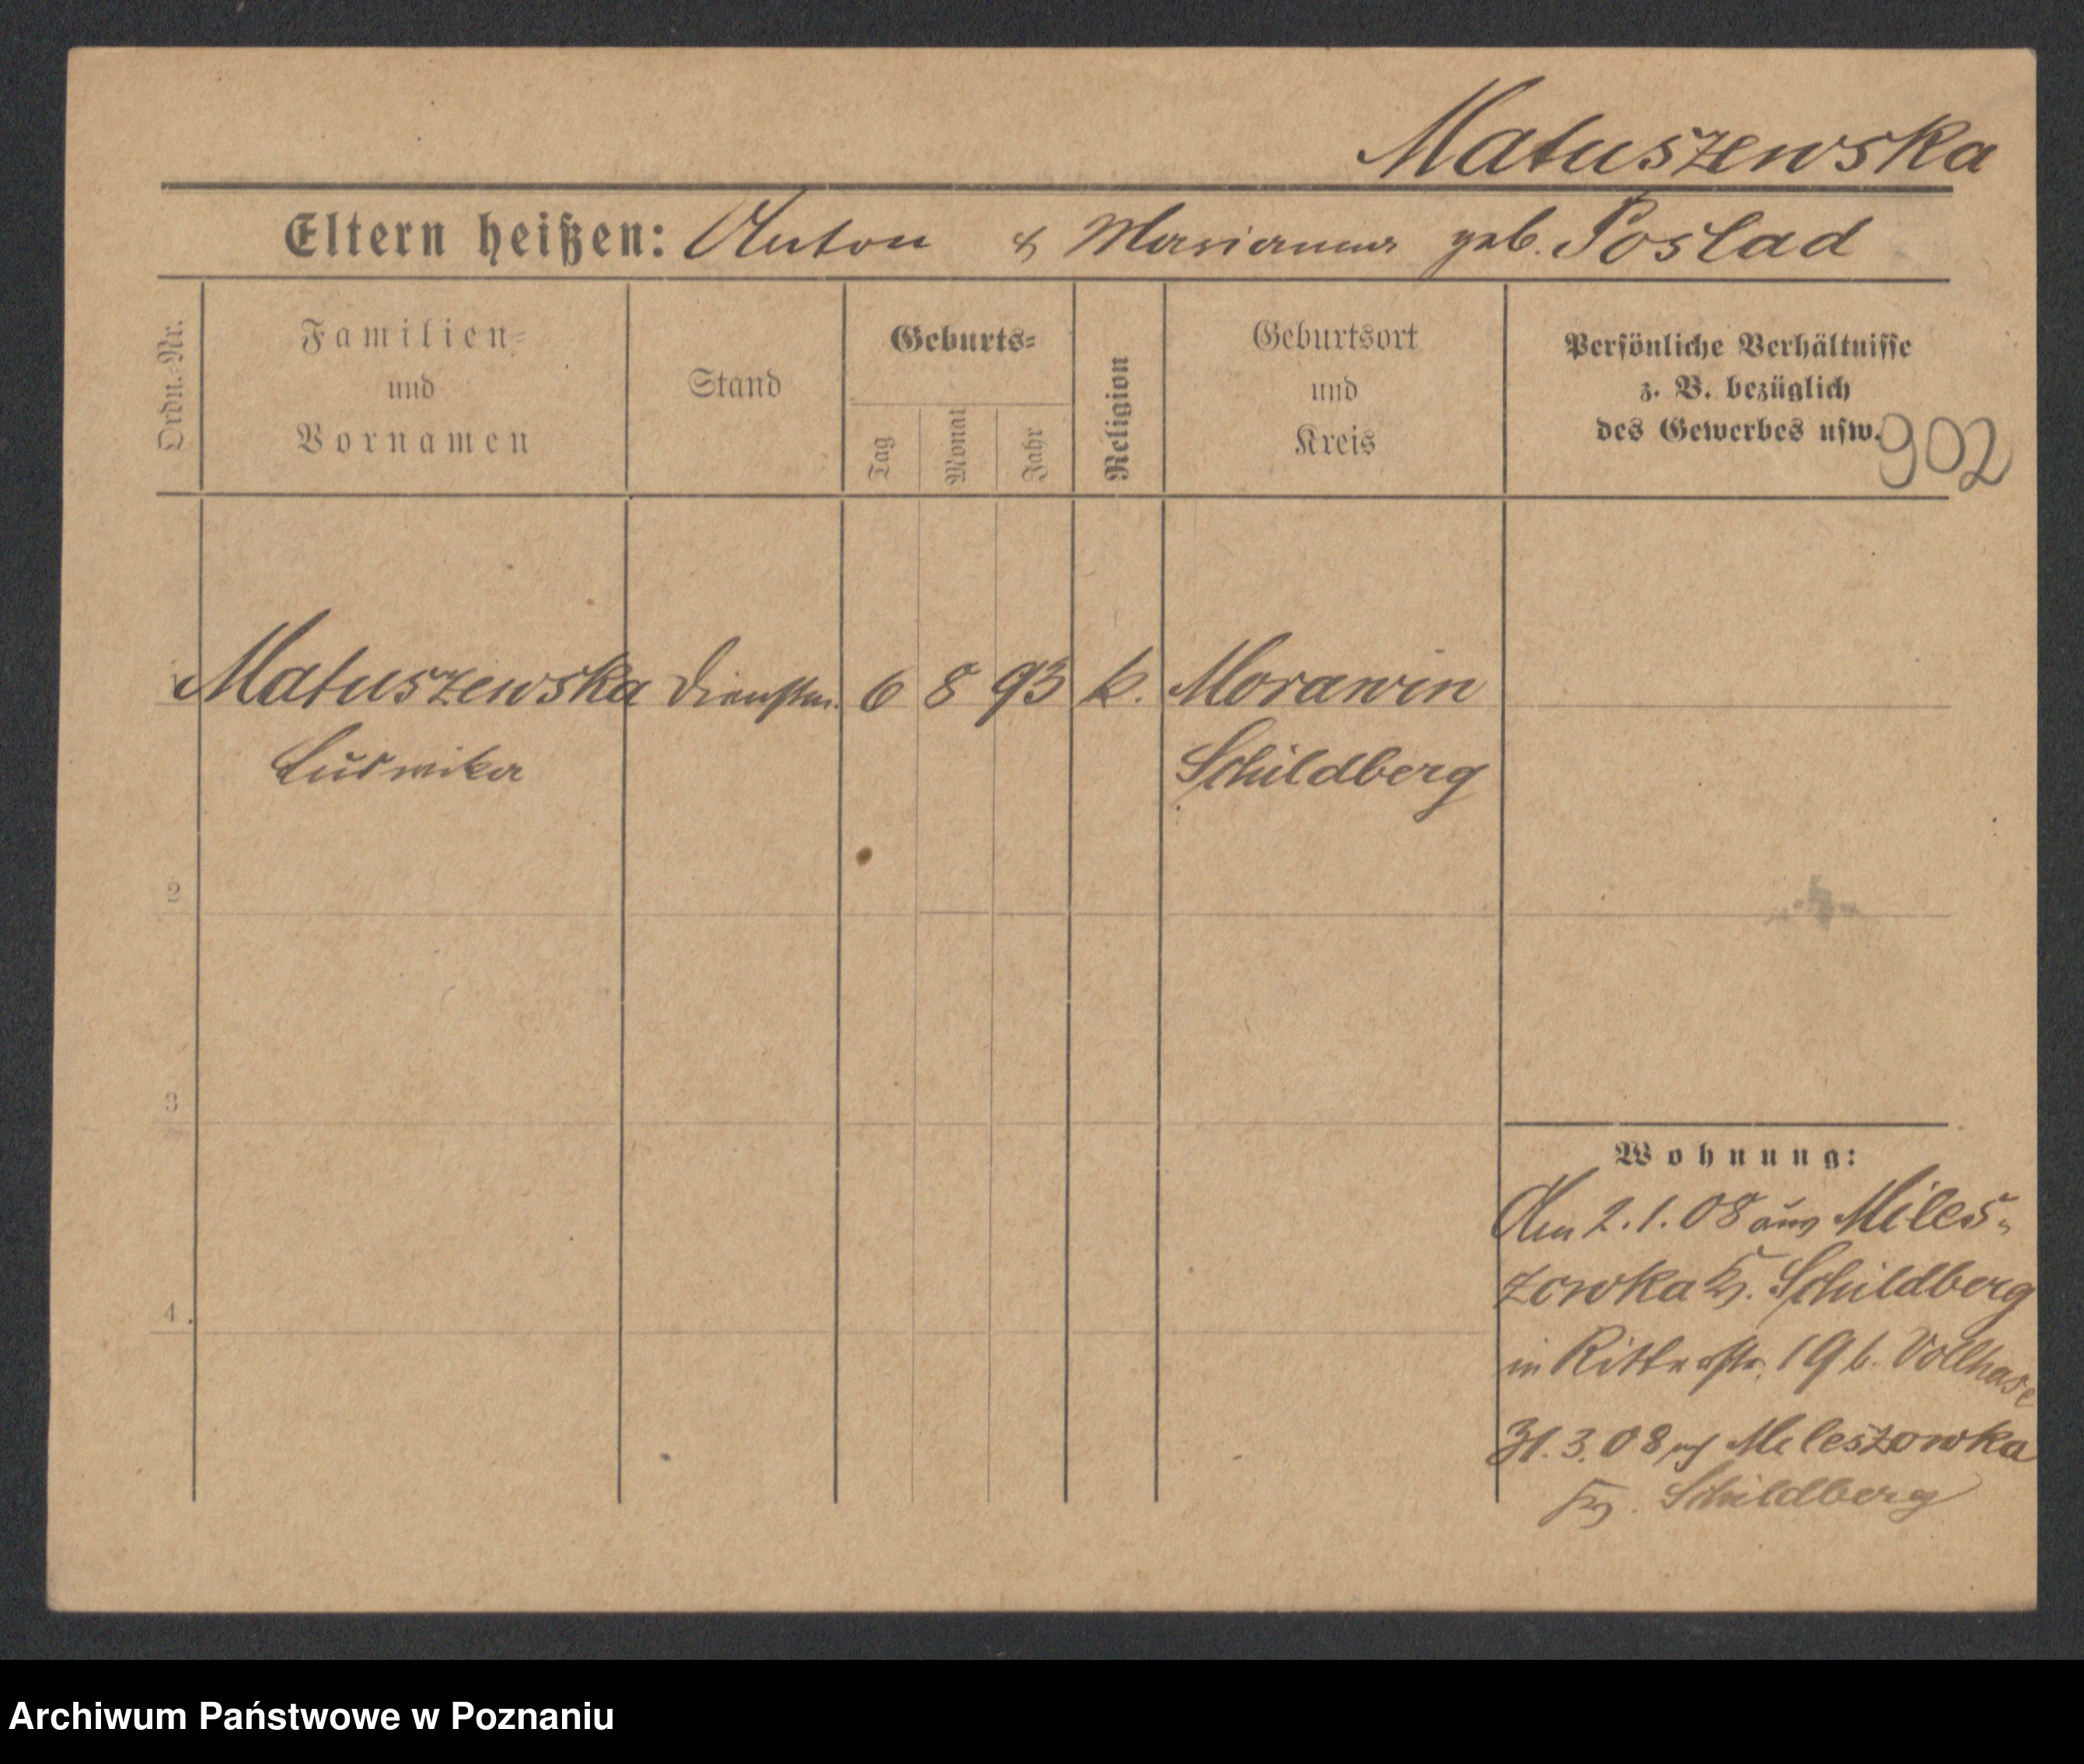 Matuszewska
Eltern heißen: Anton & Marianna geb. Poslad
Ordn.-Nr.
Familien-
und
Vornamen
Stand
Geburts-
Tag
Monat
Jahr
Religion
Geburtsort
und
Kreis
Persönliche Verhältnisse
z. B. bezüglich
des Gewerbes usw.
902
1 Matuszewska Dienstm. 6 8 93 k. Morawin
Ludwika Schildberg
2
3
4.
Wohnung:
Am 2.1.08 aus Miles-
zowka Kr. Schildberg
in Ritterstr. 19 b. Vollhase
31.3.08 nach Mileszowka
Kr. Schildberg
Archiwum Państwowe w Poznaniu